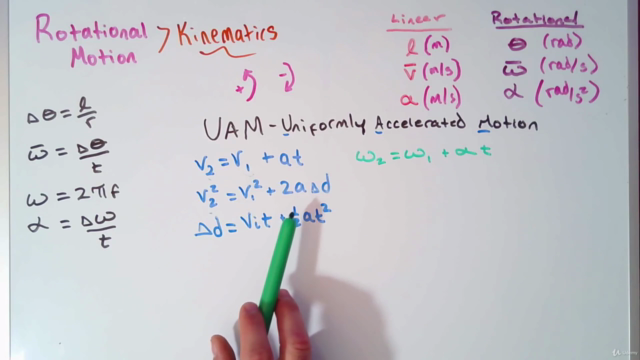 Rotational Motion > Kinematics
+ -
Linear Rotational
l (m) θ (rad)
v̄ (m/s) ω̄ (rad/s)
a (m/s) α (rad/s²)
Δθ = l/r
ω̄ = Δθ/t
ω = 2πf
α = Δω/t
UAM - Uniformly Accelerated Motion
v₂ = v₁ + at
v₂² = v₁² + 2aΔd
Δd = v₁t ½at²
ω₂ = ω₁ + αt